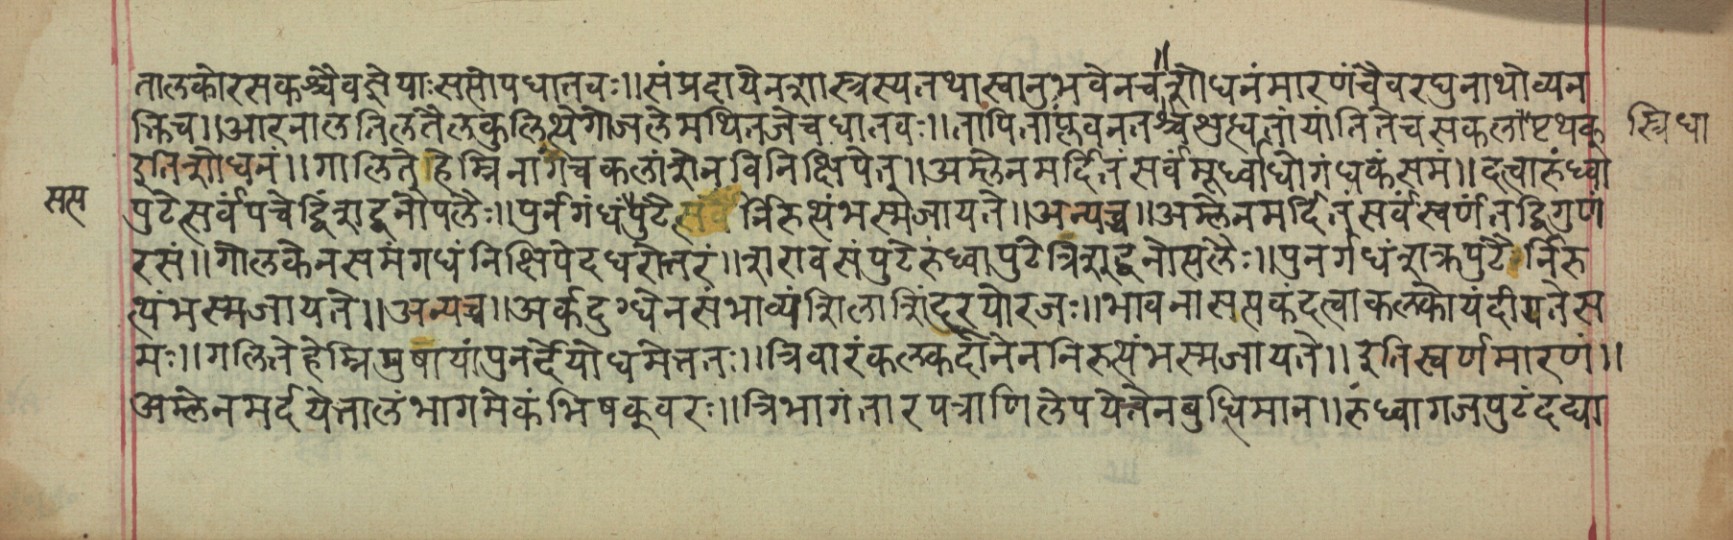 तालकोरसकश्चैवज्ञेयाःसप्तोपधातवः॥संप्रदायेनशास्त्रस्यतथास्वानुभवेनच॥शोधनंमारणंचैवरघुनाथोव्यन
क्तिच॥आरनालतिलतैलकुलित्थेगोजलेमथितजेचधातवः॥तापितांप्लवनतश्चशुध्यतांयांतितेचसकलाःपृथक् स्त्रिधा
इतिशोधनं॥गालितेहेम्निनागंचकलांशेनविनिक्षिपेत्॥अम्लेनमर्दितंसर्वंमूर्ध्वाधोगंधकंसमं॥दत्वारुंध्वा
सप्त
पुटेत्सर्वंपंचेद्विंशद्वनोपलैः॥पुर्नगंधंपुटेत्सर्वंनिरुत्थंभस्मजायते॥अन्यच्च॥अम्लेनमर्दितंसर्वंस्वर्णंतद्विगुणं
रसं॥गोलकेनसमंगधंनिक्षिपेदधरोत्तरं॥शरावसंपुटेरुंध्वापुटेत्रिंशद्वनोपलैः॥पुनर्गधंशक्रपुटैर्निरु
त्थंभस्मजायते॥अन्यच्च॥अर्कदुग्धेनसंभाव्यंशिलाशिंदूरयोरजः॥भावनासप्तकंदत्वाकल्कोयंदीयतेस
मः॥गलितेहेम्निमुषायांपुनर्देयोधमेत्ततः॥त्रिवारंकल्कदानेननिरुत्थंभस्मजायते॥इतिस्वर्णमारणं॥
अम्लेनमर्दयेत्तालंभागमेकंभिषक्वरः॥त्रिभागंतारपत्राणिलेपयेत्तेनबुधिमान॥रुंध्वागजपुटंदद्या